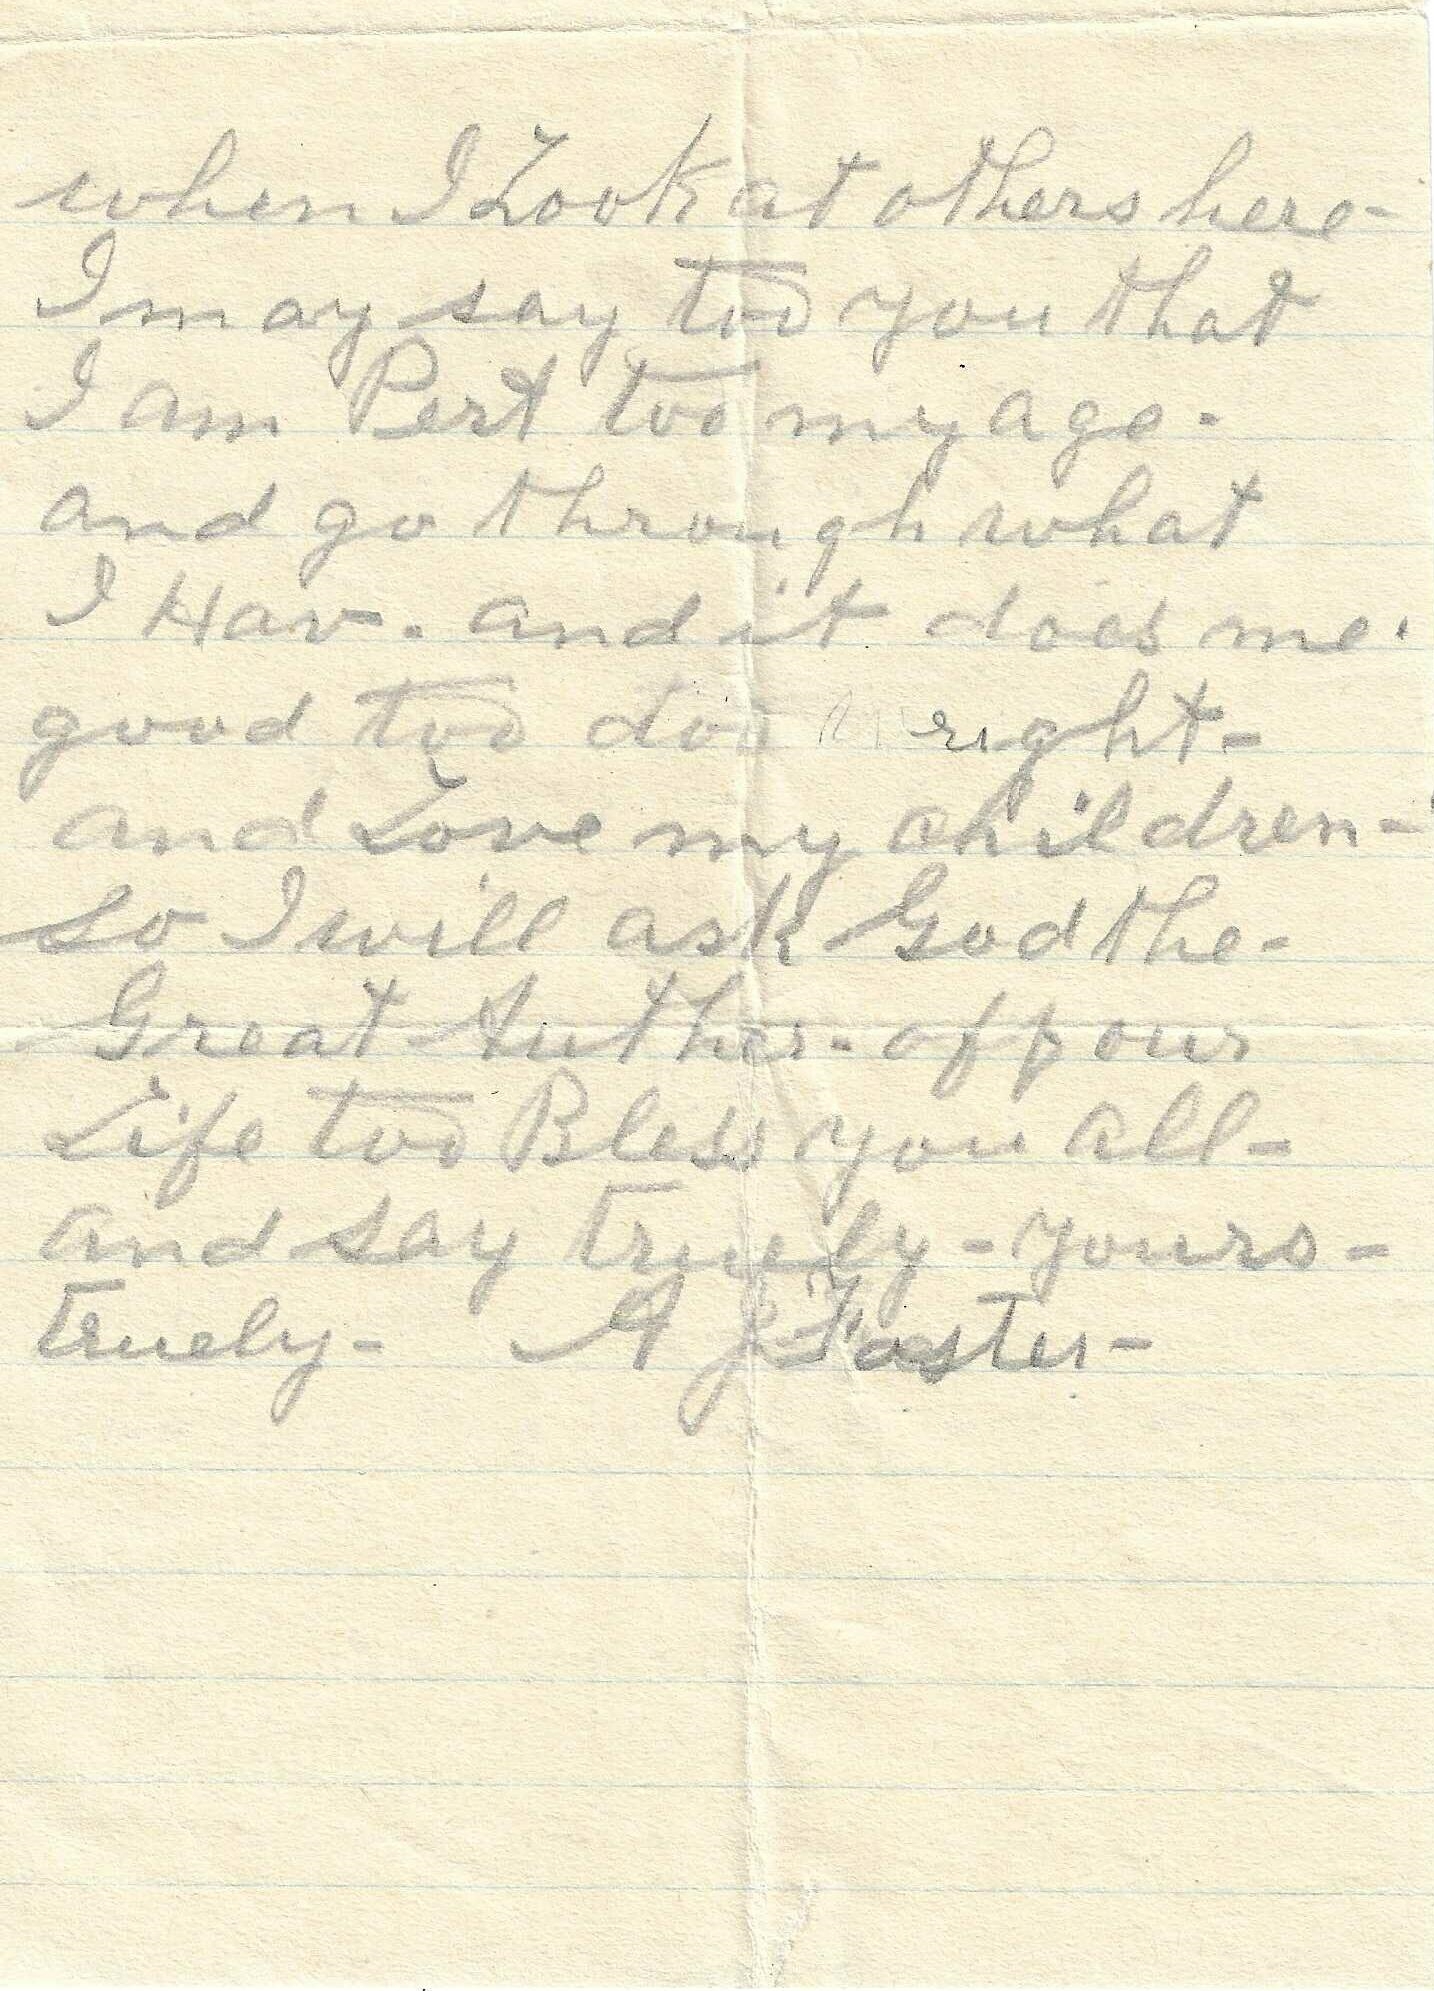 when I Look at others here-
I may say too you that
I am Pert too my age.
and go through what
I Hav-. and it does me.
good too doo right-
and Love my children-
so I will ask God the-
Great Auther- off our
Life too Bless you all-
and say truely- yours-
truely- A J Foster-